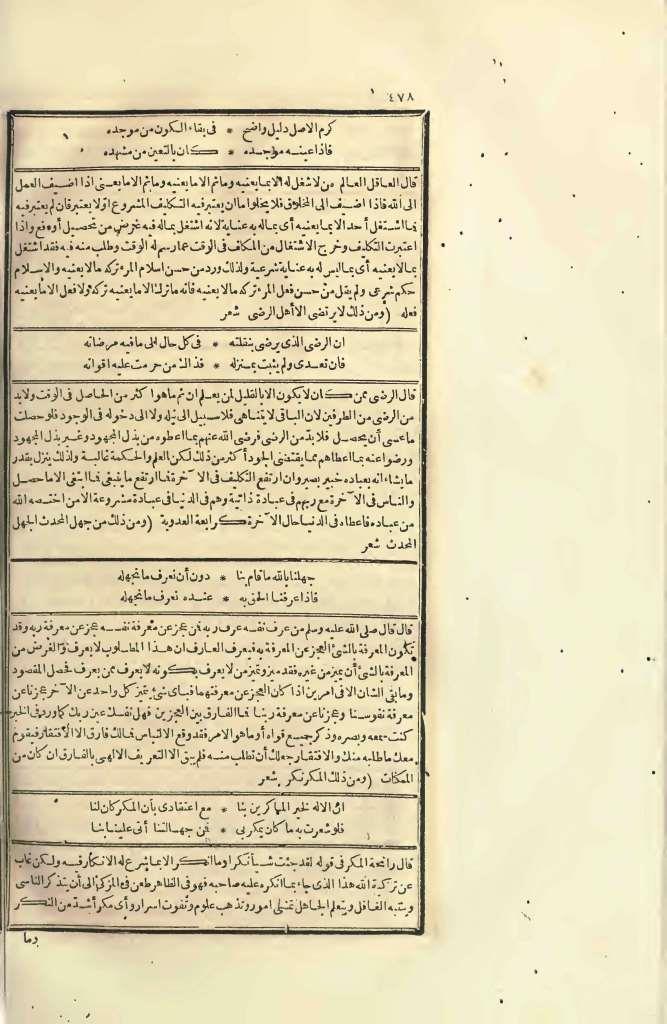 ٤٧٨
كرم الاصل دليل واضح * فى بقاء الكون من موجده
فاذا عينه مواجده * كان بالتعين من مشهده
قال العاقل العالم من لا شغل له الا بما يعنيه وما ثم الا ما يعنيه وما ثم الا ما يعنى اذا اضيف العمل
الى الله فاذا اضيف الى المخلوق فلا يخلو اما ان يعتبر فيه التكليف المشروع اولا يعتبر فان لم يعتبر فيه
فما اشتغل أحد الا بما يعنيه أى بماله به عناية لانه اشتغل بماله فيه غرض من تحصيل أو دفع واذا
اعتبرت التكليف وخرج الاشتغال من المكلف فى الوقت عما رسم له الوقت وطلب منه فيه فقد اشتغل
بما لا يعنيه أى بما ليس له به عناية شرعية ولذلك ورد من حسن اسلام المرء تركه مالا يعنيه والاسلام
حكم شرعى ولم يقل من حسن فعل المرء تركه مالا يعنيه فانه ما ترك الا ما يعنيه تركه ولا فعل الا ما يعنيه
فعله (ومن ذلك لا يرتضى الا أهل الرضى شعر
ان الرضى الذى يرضى بنقلته * فى كل حال الى ما فيه مرضاته
فان تعدى ولم يثبت بمنزله * فذاك من حرمت عليه اقواته
قال الرضى ممن كان لا يكون الا بالقليل لمن يعلم ان ثم ما هوا كثر من الحاصل فى الوقت ولا بد
من الرضى من الطرفين لان الباقى لا يتناهى فلا سبيل الى نيله ولا الى دخوله فى الوجود فلو حصلت
ما عسى أن يحصل فلا بد من الرضى فرضى الله عنهم بما اعطوه من بذل المجهود وغير بذل المجهود
ورضوا عنه بما اعطاهم مما يقتضى الجود أكثر من ذلك لكن العلم والحكمة غالبة ولذلك ينزل بقدر
ما يشاء انه بعباده خبير بصير وان ارتفع التكليف فى الا خرة فما ارتفع ما ينبغى فما ابتغى الا ما حصل
والناس فى الا خرة مع ربهم فى عبادة ذاتية وهم فى الدنيا فى عبادة مشروعة الا من اختصه الله
من عباده فاعطاه فى الدنيا حال الا خرة كرابعة العدوية (ومن ذلك من جهل المحدث الجهل
المحدث شعر
جهلنا بالله ما قام بنا * دون أن نعرف ما نجهله
فاذا عرفنا الحق به * عنده نعرف ما نجهله
قال قال صلى الله عليه وسلم من عرف نفسه عرف ربه فمن عجز عن معرفة نفسه عجز عن معرفة ربه وقد
تكون المعرفة بالشئ العجز عن المعرفة به فيعرف العارف ان هذا المطلوب لا يعرف والغرض من
المعرفة بالشئ أن يميز من غيره فقد ميز وتميز من لا يعرف بكونه لا يعرف ممن يعرف فحصل المقصود
وما بقى الشان الا فى امرين اذا كان العجز عن معرفتهما فباى شئ يتميز كل واحد عن الا خر عجزنا عن
معرفة نفوسنا وعجزنا عن معرفة ربنا فما الفارق بين العجزين فهل نفسك عين ربك كما ورد فى الخبر
كنت سمعه وبصره وذكر جميع قواه أو ما هو الامر فقد وقع الالتباس فمالك فارق الا الافتقار فيقوم
معك ما طلبه منك والافتقار جعلك أن تطلب منه فلم يبق الا التعريف الالهى بالفارق ان كان من
الممكنات (ومن ذلك المكر نكر شعر
ان الاله لخير الماكرين بنا * مع اعتقادى بأن المكر كان لنا
فلو شعرت به ما كان يمكر بى * فمن جهالتنا أتى علينا بنا
قال رائحة المكر فى قوله لقد جئت شيأ نكرا وما انكر الا بما شرع له الانكار فيه ولكن غاب
عن تزكية الله هذا الذى جاء بما انكره عليه صاحبه فهو فى الظاهر طعن فى المزكى الى أن يتذكر الناسى
وينتبه الغافل ويتعلم الجاهل تخلى امور وتذهب علوم وتفوت اسرار وأى مكر أشد من النكر
وما